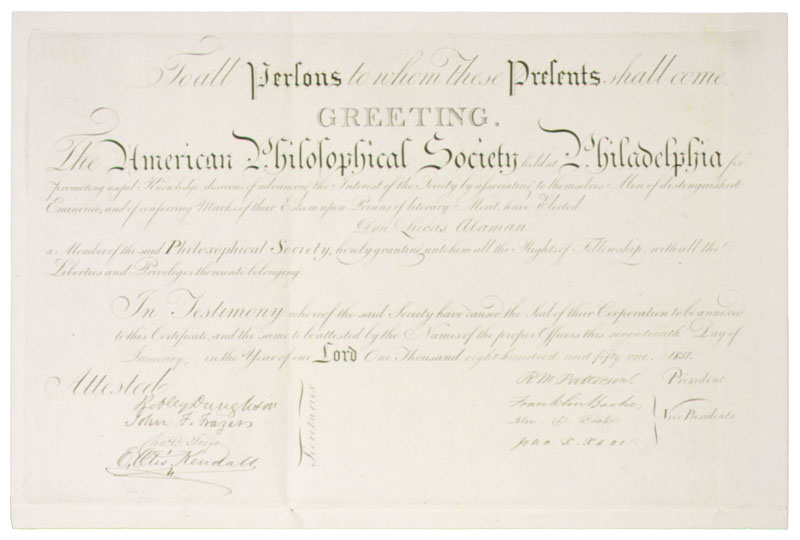 To all Persons to whom these Presents shall come,
GREETING.
The American Philosophical Society held at Philadelphia for
promoting useful Knowledge, desirous of advancing the Interest of the Society by associating to themselves Men of distinguished
Eminence, and of conferring Marks of their Esteem upon Persons of literary Merit, have Elected
Don Lucas Alaman
a Member of the said Philosophical Society, hereby granting unto him all the Rights of Fellowship, with all the
Liberties and Privileges thereunto belonging.
In Testimony whereof the said Society have caused the Seal of their Corporation to be annexed
to this Certificate, and the same to be attested by the Names of the proper Officers this seventeenth Day of
January, in the Year of our Lord One Thousand eight hundred and fifty one. 1851.
Attested
R. M. Patterson, President
Franklin Bache,
Vice Presidents
John F. Frazer
Secretaries
Kendall